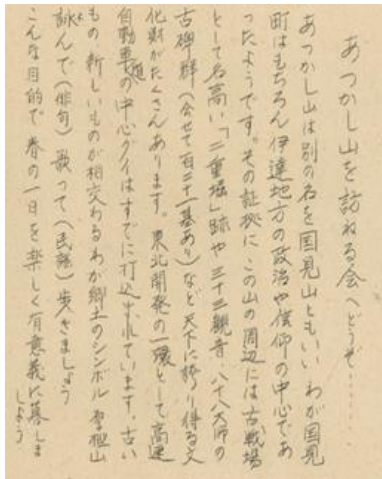 あつかし山を訪ねる会へどうぞ……
あつかし山は別の名を国見山ともいい わが国見
町はもちろん伊達地方の政治や信仰の中心であ
ったようです。その証拠に この山の周辺には古戦場
として名高い「二重堀」跡や 三十三観音・八十八大師の
古碑群(合せて百二十一基あり)など 天下に誇り得る文
化財がたくさんあります。東北開発の一環として高速
自動車道の中心グイはすでに打込まれています。古い
もの 新しいものが相交わるわが郷土のシンボル 厚樫山
詠んで(俳句) 歌って(民謡) 歩きましょう
こんな目的で 春の一日を楽しく有意義に暮しま
しょう